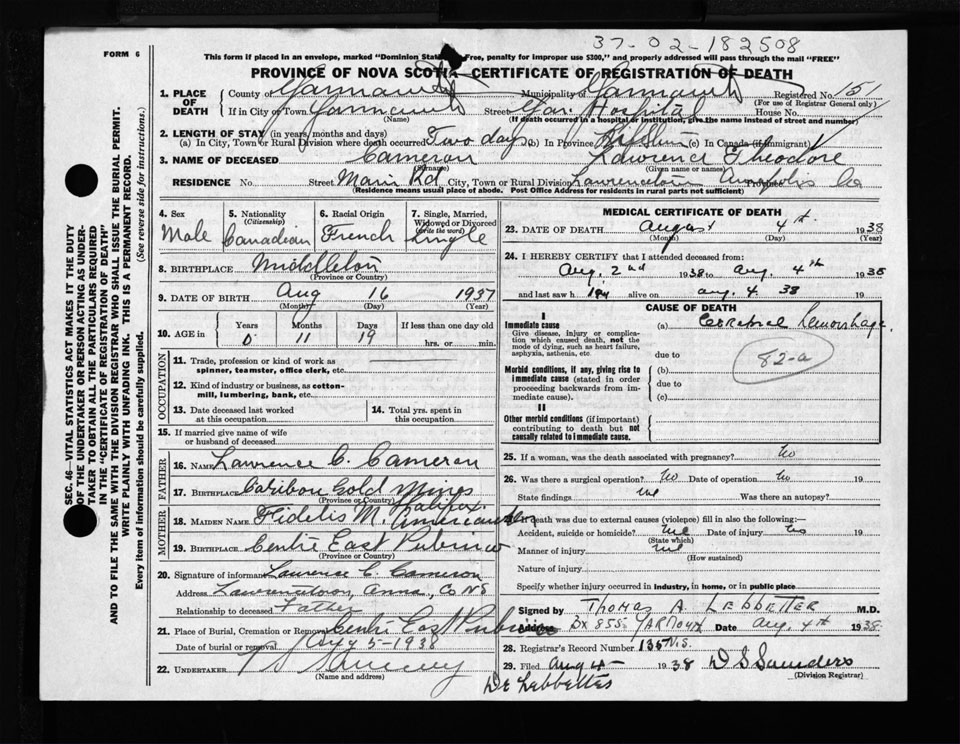 37-02-182508
FORM 6
This form if placed in an envelope, marked "Dominion Stat Free, penalty for improper use $300," and properly addressed will pass through the mail "FREE"
PROVINCE OF NOVA SCOTIA—CERTIFICATE OF REGISTRATION OF DEATH
1. PLACE OF DEATH County of Yarmouth Municipality of Yarmouth Registered No. 151
(For use of Registrar General only)
If in City or Town Yarmouth Street Yar. Hospital House No.
(Name) (If death occurred in a hospital or institution, give the name instead of street and number)
2. LENGTH OF STAY (in years, months and days)
(a) In City, Town or Rural Division where death occurred Two days (b) In Province Lifetime (c) In Canada (if immigrant)
3. NAME OF DECEASED Cameron Lawrence Theodore
(Surname) (Given name or names)
RESIDENCE No. Street Main Rd City, Town or Rural Division Lawrencetown Province Annapolis Co
(Residence means usual place of abode. Post Office Address for residents in rural parts not sufficient)
4. Sex Male
5. Nationality (Citizenship) Canadian
6. Racial Origin French
7. Single, Married, Widowed or Divorced (write the word) Single
8. BIRTHPLACE Middleton
(Province or Country)
9. DATE OF BIRTH Aug 16 1937
(Month) (Day) (Year)
10. AGE in Years 0 Months 11 Days 19 If less than one day old hrs. or min.
OCCUPATION
11. Trade, profession or kind of work as spinner, teamster, office clerk, etc.
12. Kind of industry or business, as cotton-mill, lumbering, bank, etc.
13. Date deceased last worked at this occupation
14. Total yrs. spent in this occupation
15. If married give name of wife or husband of deceased
FATHER
16. NAME Lawrence C. Cameron
17. BIRTHPLACE Caribou Gold Mines
(Province or Country) Halifax
MOTHER
18. MAIDEN NAME Fidelis M.
19. BIRTHPLACE Centre East Pubnico
(Province or Country)
20. Signature of informant Lawrence C. Cameron
Address Lawrencetown, Anna. Co NS
Relationship to deceased Father
21. Place of Burial, Cremation or Removal Centre East Pubnico
Date of burial or removal Aug 5 - 1938
22. UNDERTAKER
(Name and address)
MEDICAL CERTIFICATE OF DEATH
23. DATE OF DEATH August 4th 1938
(Month) (Day) (Year)
24. I HEREBY CERTIFY that I attended deceased from:
Aug. 2nd 1938 to Aug. 4th 1938
and last saw h im alive on Aug. 4 38 19
CAUSE OF DEATH
I
Immediate cause
Give disease, injury or complication which caused death, not the mode of dying, such as heart failure, asphyxia, asthenia, etc
(a) Cerebral hemorrhage
due to
82-a
Morbid conditions, if any, giving rise to immediate cause (stated in order proceeding backwards from immediate cause).
(b)
due to
(c)
II
Other morbid conditions (if important) contributing to death but not causally related to immediate cause.
25. If a woman, was the death associated with pregnancy? No
26. Was there a surgical operation? No Date of operation No 19
State findings Was there an autopsy?
27. If death was due to external causes (violence) fill in also the following:—
Accident, suicide or homicide? Date of injury No 19
(State which)
Manner of injury
(How sustained)
Nature of injury
Specify whether injury occurred in industry, in home, or in public place
Signed by Thomas A. Lebbetter M.D.
Address Bx 855 Yarmouth Date Aug. 4th 1938
28. Registrar's Record Number 135 N.S.
29. Filed Aug 4 1938 D S Saunders
(Division Registrar)
Dr Lebbettes
SEC. 46—VITAL STATISTICS ACT MAKES IT THE DUTY
OF THE UNDERTAKER OR PERSON ACTING AS UNDER-
TAKER TO OBTAIN ALL THE PARTICULARS REQUIRED
IN THE "CERTIFICATE OF REGISTRATION OF DEATH"
AND TO FILE THE SAME WITH THE DIVISION REGISTRAR WHO SHALL ISSUE THE BURIAL PERMIT.
WRITE PLAINLY WITH UNFADING INK. THIS IS A PERMANENT RECORD.
Every item of information should be carefully supplied. (See reverse side for instructions.)